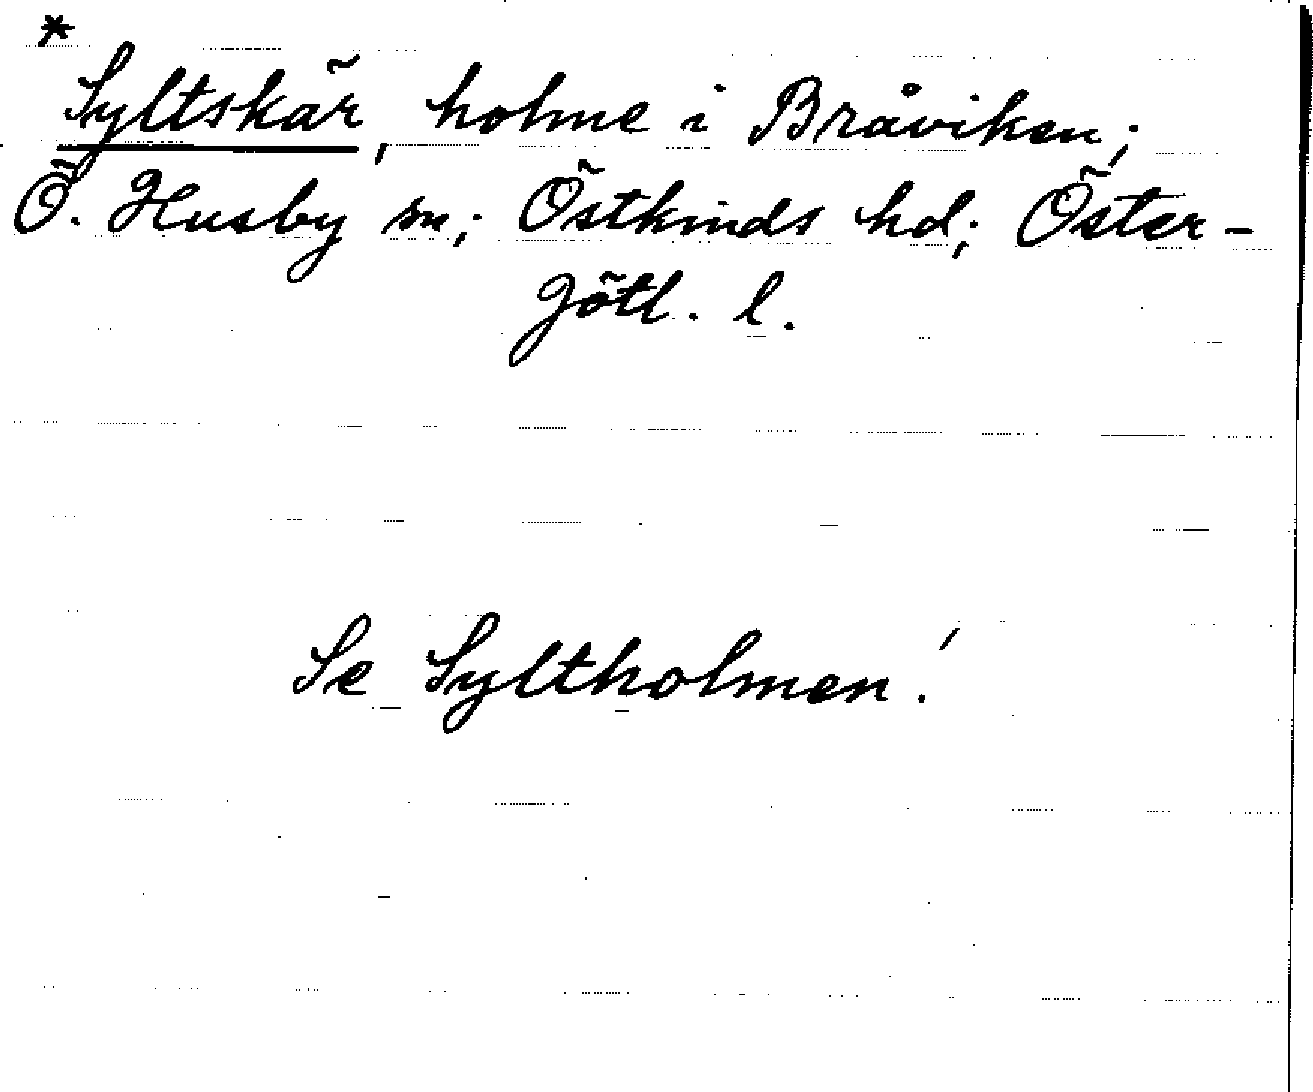 *
Syltskär, holme i Bråviken;
Ö. Husby sn; Östkinds hd; Öster-
götl. l.
Se Syltholmen!